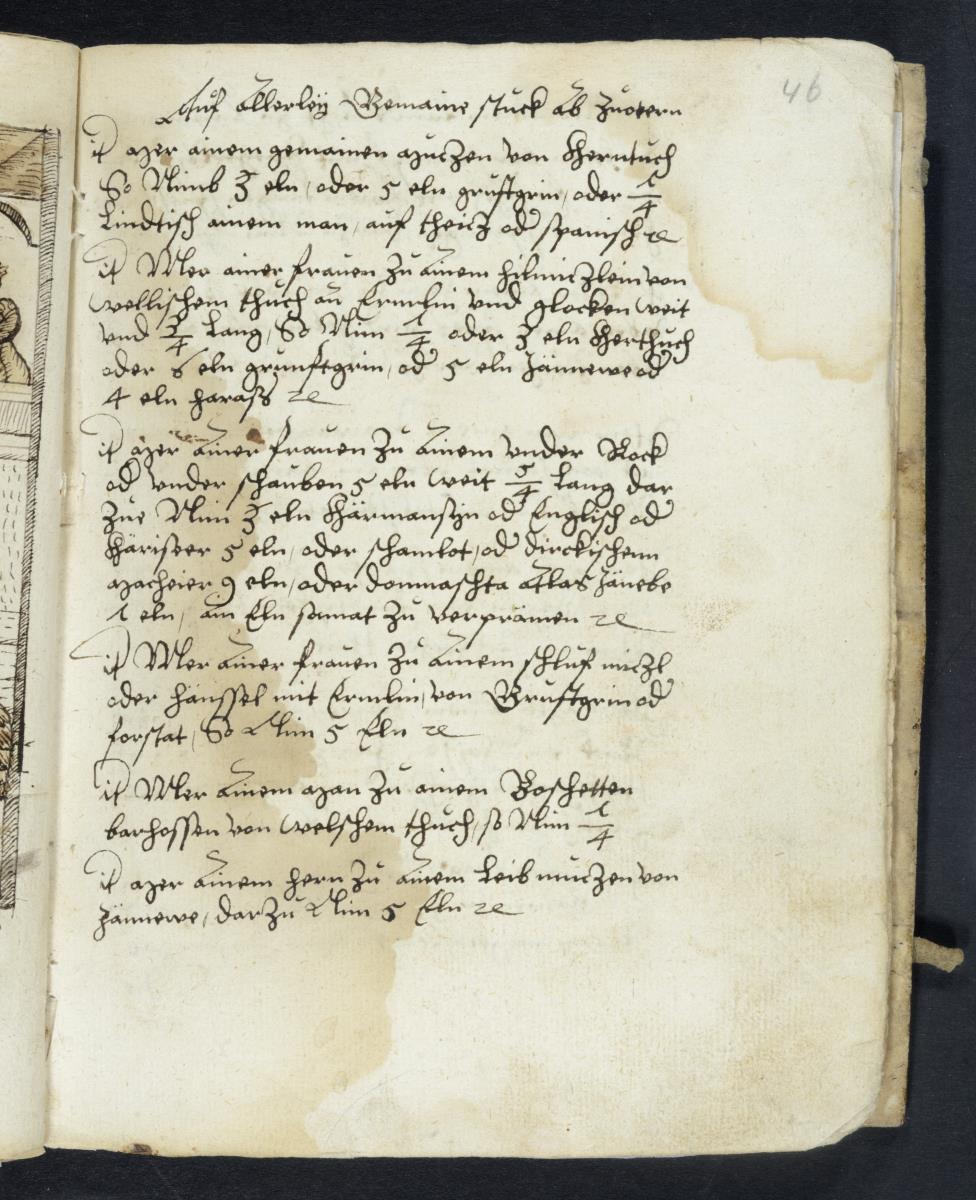 46
Auf Allerleÿ Gemaine stuck Ab zuotern
it mer ainem gemainen muczen von Herntuch
So Nimb 3 eln, oder 5 eln grustgrin, oder 1/4
Lindtisch ainem man, auf theicz od spanisch ꝛc
it Mer ainer frauen zu Ainem hilmiczlein von
wellischem thuch an Ermlin vnd glocken weit
vnd 3/4 Lang, So Nim 1/4 oder 3 eln Herthuch
oder 6 eln grunftgrin, od 5 eln Jännewe od
4 eln harass ꝛc
it mer Ainer frauen zu Ainem vnder Rock
od vnder schauben 5 eln weit 5/4 Lang dar
zue Nim 3 eln Härmansin od Englisch od
5 eln, oder schamlot, od dirckischenn
macheier 9 eln, oder dommaschta Atlas Jänebe
1 eln, am Eln samat zu verprämen ꝛc
it Mer Ainer frauen zu Ainem schluf miczl
oder hänssel mit Ermlin, von Grustgrin od
forstat, So Nim 5 Eln ꝛc
it Mer Ainem man zu ainem Boschetten
barhossen von welschem thuch, so Nim 1/4
it mer Ainem hern zu Ainem Leib muczen von
Jännewe, darzu Nim 5 Eln ꝛc